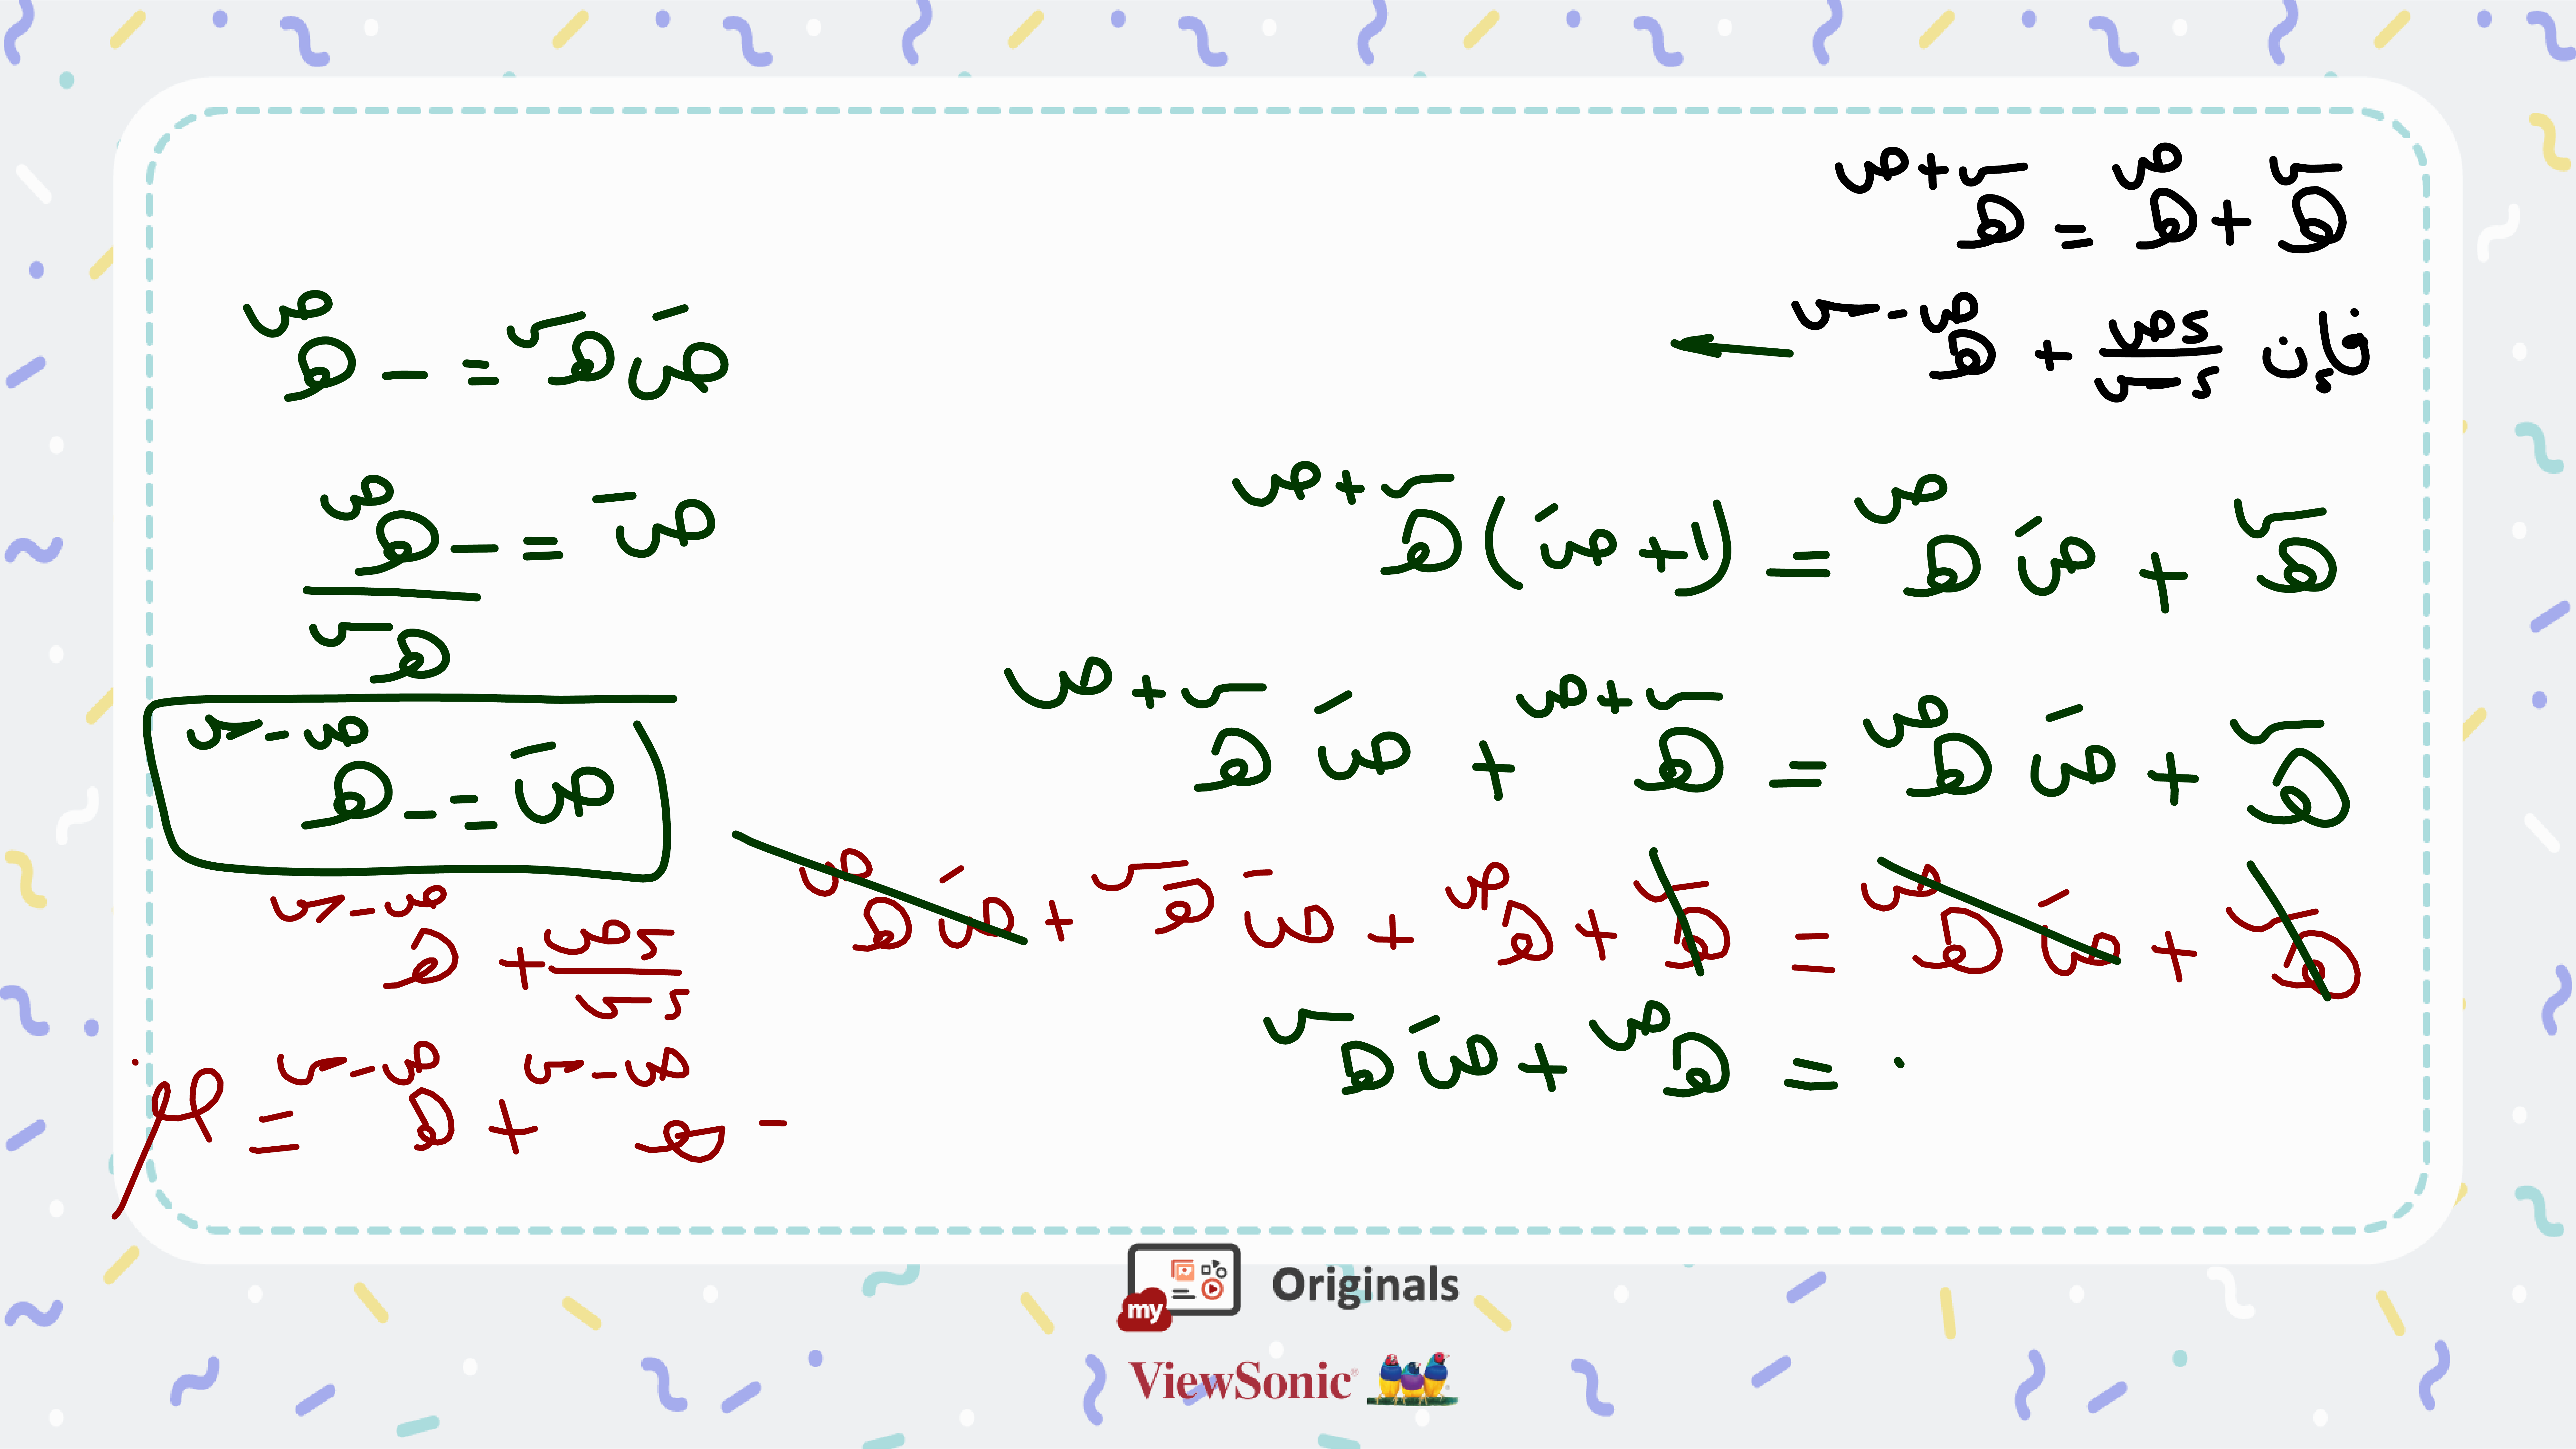 هـ^س + هـ^ص = هـ^(س+ص)
فإن ءص/ءس + هـ^(ص-س) ←
هـ^س + صَ هـ^ص = (١+صَ) هـ^(س+ص)
هـ^س + صَ هـ^ص = هـ^(س+ص) + صَ هـ^(س+ص)
هـ^س + صَ هـ^ص = هـ^س + هـ^ص + صَ هـ^س + صَ هـ^ص
٠ = هـ^ص + صَ هـ^س
صَ هـ^س = - هـ^ص
صَ = - هـ^ص / هـ^س
صَ = - هـ^(ص-س)
ءص/ءس + هـ^(ص-س)
- هـ^(ص-س) + هـ^(ص-س) =
my Originals
ViewSonic